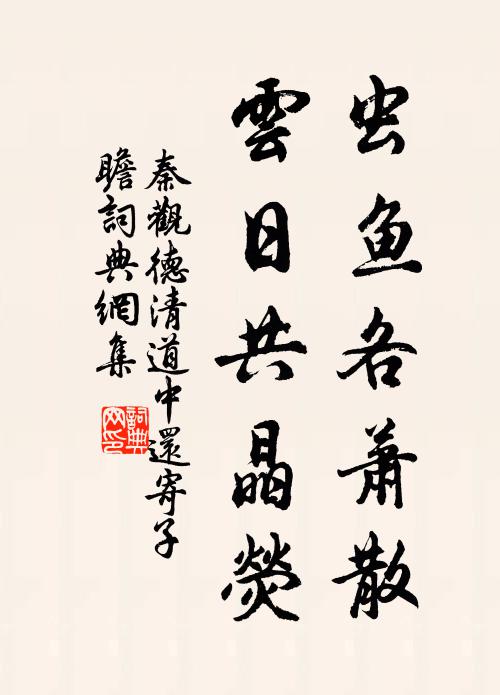 虫鱼各萧散
雲日共晶熒
秦觀德清道中還寄子
瞻詞典網集
詞典
网印